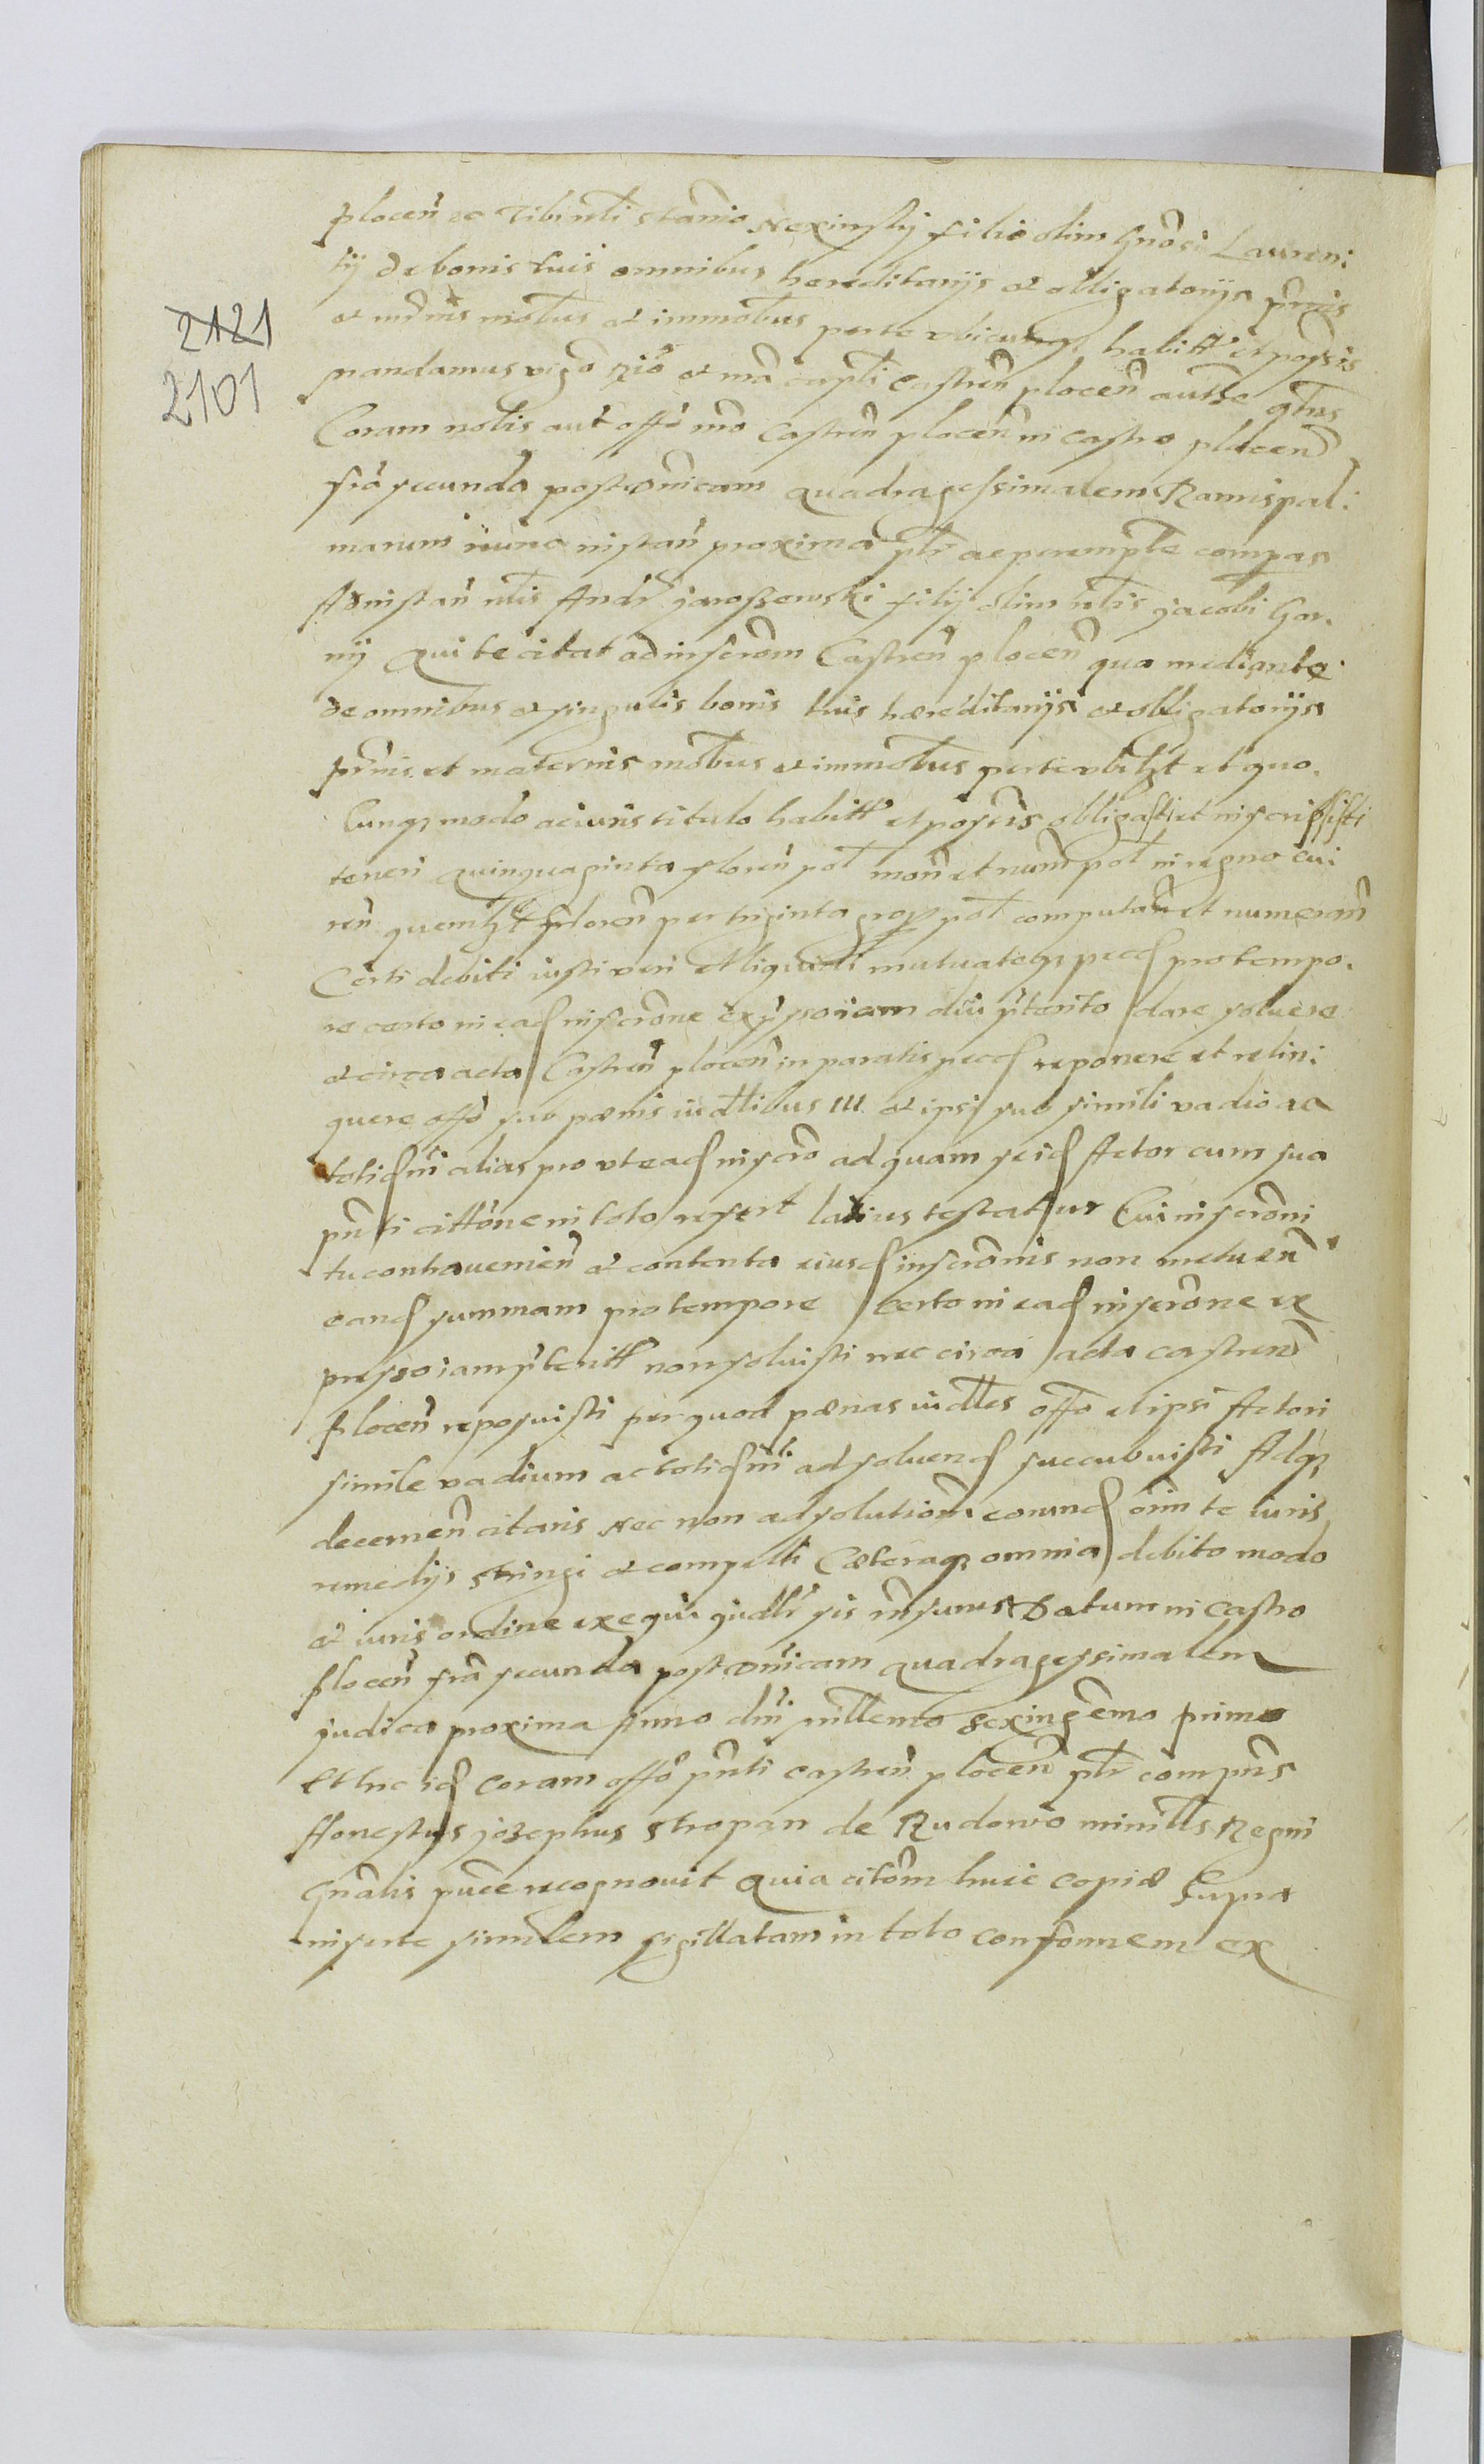 2121
2101
plocen̄ ec Tibi nbli Stanio Nexinskij filio olim Gnōsi Lauren:
tij de bonis tuis omnibus hereditarijs et obligatorijs pr̄nis
et mr̄nis mobl̄bus et immobl̄bus per te vbicunq habitt et possis
mandamus vigō n̄iō et mā capt̄li Castren̄ plocen̄ autt̄e qt̄nus
Coram nobis aut offō nrō Castren̄ plocen̄ in Castro plocen̄
fr̄a secunda post dn̄icam quadragessimalem Ramispal:
marum nunc instan̄ proxima pt̄r ac peremptt̄e compas
Ad instan̄ nt̄lis Andr̄ jarosZewski filij olim nt̄lis jacobi Gor:
nij Qui te citat ad inscrōm Castren̄ plocen̄ qua mediante
de omnibus et singulis bonis tuis hæreditarijs et obligatorijs
pr̄nis et maternis mobl̄bus et immobl̄bus per te vbilȝt et quo.
Cunqȝ modo ac iuris titulo habitt et possis obligasti et inscripsisti
teneri Quinquaginta floren̄ pol mon̄ et num̄ pol in regno cur:
ren̄ quemlȝt floren̄ per triginta gross pol computan̄ et numeran̄
Certi debiti iusti veri et liquidi mutuateqȝ pecc pro tempo.
re certo in ead inscrōne expresso iam diū pr̄terito dare soluere
et circa acta Castren̄ plocen̄ in paratis pecc reponere et relin:
quere offō sub pænis iudl̄ibus III et ipsi sub simili vadio ac
totid m̄ alias pro vt ead inscrō ad quam se id Actor cum sua
pn̄ti cittōne in toto refert latius testatur Cui inscrōni
tu contraueniēn̄ et contenta eiusd inscrōnis non metuen̄
eand summam pro tempore certo in ead inscrōne ex
presso iam pr̄teritt non soluisti nec circa acta castren̄
plocen̄ reposuisti per quod pænas iudl̄es offō et ipsi Actori
simile vadium ac totid m̄ ad soluend succubuisti Adqȝ
decernen̄ citaris Nec non ad solutiōm eorund ōnīm te iuris
remedijs stringi et compelli Cæteraqȝ omnia debito modo
et iuris ordine exequi judlr̄ sis rn̄surus Datum in Castro
plocen̄ fr̄a secunda post dn̄icam Quadragessimalem
judica proxima Anno dn̄i millēmo Sexingēmo primo
Et hic id coram offō pn̄ti castren̄ plocen̄ pt̄r compn̄s
Honestus jozephus Stropan de Rudowo minitl̄s Regni
Gnālis pub̄ce recognouit Quia citōm huic copiæ Supra
inserte similem sigillatam in toto conformem ex